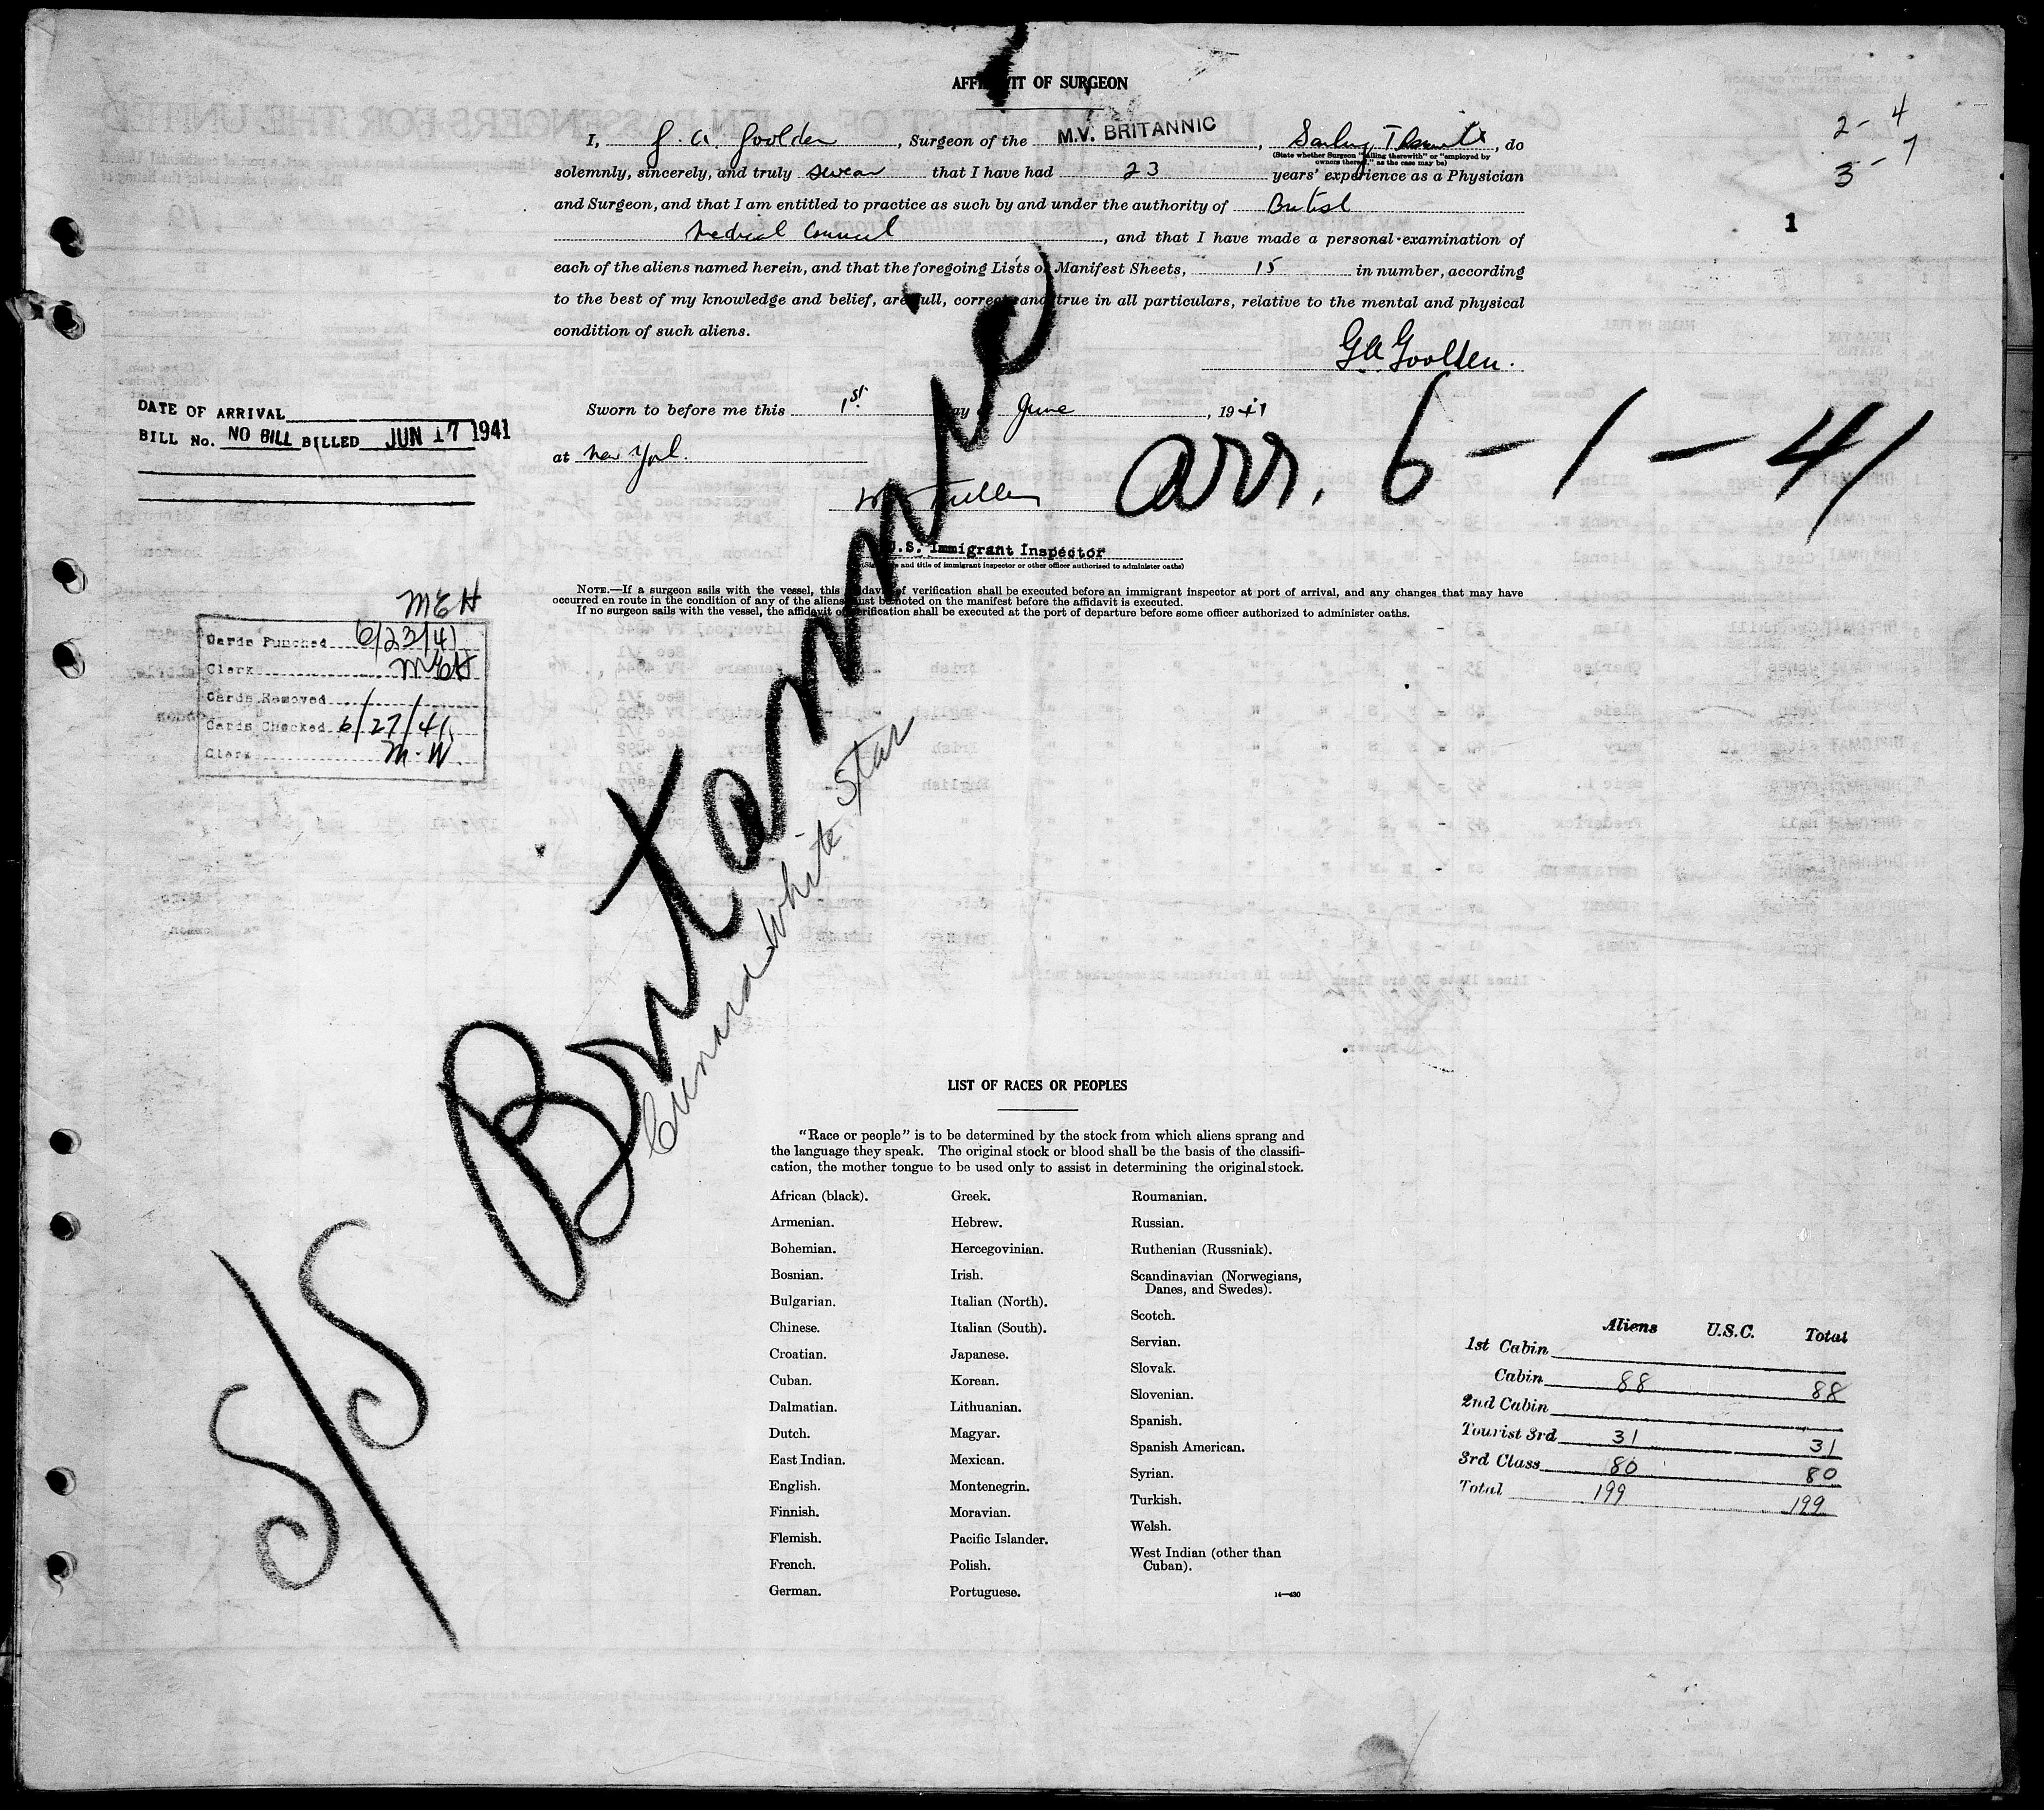 AFFIDAVIT OF SURGEON
I, G. A. Goolden, Surgeon of the M.V. BRITANNIC, Sailing Therewith, do
(State whether Surgeon "sailing therewith" or "employed by
owners thereof," as the case may be)
solemnly, sincerely, and truly swear that I have had 23 years' experience as a Physician
and Surgeon, and that I am entitled to practice as such by and under the authority of British
Medical Council, and that I have made a personal examination of
each of the aliens named herein, and that the foregoing Lists or Manifest Sheets, 15 in number, according
to the best of my knowledge and belief, are full, correct, and true in all particulars, relative to the mental and physical
condition of such aliens.
GA Goolden.
2 - 4
3 - 7
1
Sworn to before me this 1st day of June, 1941
at New York.
arr. 6-1-41
U.S. Immigrant Inspector
(Signature and title of immigrant inspector or other officer authorized to administer oaths)
NOTE.—If a surgeon sails with the vessel, this affidavit of verification shall be executed before an immigrant inspector at port of arrival, and any changes that may have
occurred en route in the condition of any of the aliens must be noted on the manifest before the affidavit is executed.
If no surgeon sails with the vessel, the affidavit of verification shall be executed at the port of departure before some officer authorized to administer oaths.
DATE OF ARRIVAL
BILL No. NO BILL BILLED JUN 17 1941
MEH
Cards Punched 6/23/41
Clerk MEH
Cards Removed
Cards Checked 6/27/41
Clerk M.W.
S/S Britannic
Cunard White Star
LIST OF RACES OR PEOPLES
"Race or people" is to be determined by the stock from which aliens sprang and
the language they speak. The original stock or blood shall be the basis of the classifi-
cation, the mother tongue to be used only to assist in determining the original stock.
African (black).
Armenian.
Bohemian.
Bosnian.
Bulgarian.
Chinese.
Croatian.
Cuban.
Dalmatian.
Dutch.
East Indian.
English.
Finnish.
Flemish.
French.
German.
Greek.
Hebrew.
Hercegovinian.
Irish.
Italian (North).
Italian (South).
Japanese.
Korean.
Lithuanian.
Magyar.
Mexican.
Montenegrin.
Moravian.
Pacific Islander.
Polish.
Portuguese.
Roumanian.
Russian.
Ruthenian (Russniak).
Scandinavian (Norwegians,
Danes, and Swedes).
Scotch.
Servian.
Slovak.
Slovenian.
Spanish.
Spanish American.
Syrian.
Turkish.
Welsh.
West Indian (other than
Cuban).
14—430
Aliens U.S.C. Total
1st Cabin
Cabin 88 88
2nd Cabin
Tourist 3rd 31 31
3rd Class 80 80
Total 199 199